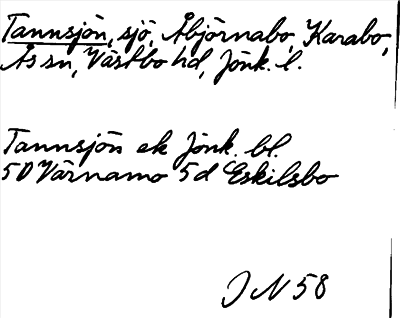 Tannsjön, sjö, Åbjörnabo, Karabo,
Ås sn, Västbo hd, Jönk. l.
Tannsjön ek Jönk. bl.
5D Värnamo 5d Eskilsbo
JN 58